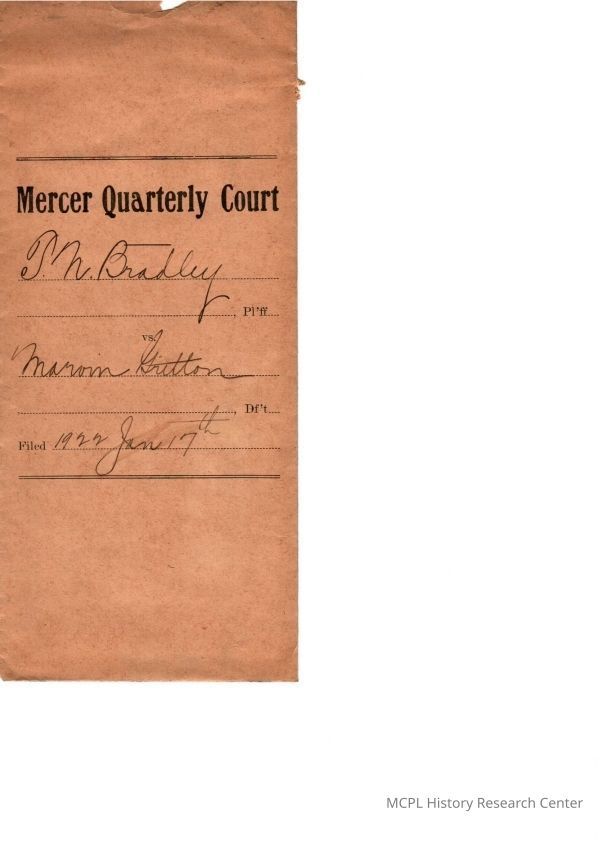 Mercer Quarterly Court
T. N. Bradley
, Pl'ff.
vs.
Marvin
, Df't.
Filed 1922 Jan 17th
MCPL History Research Center